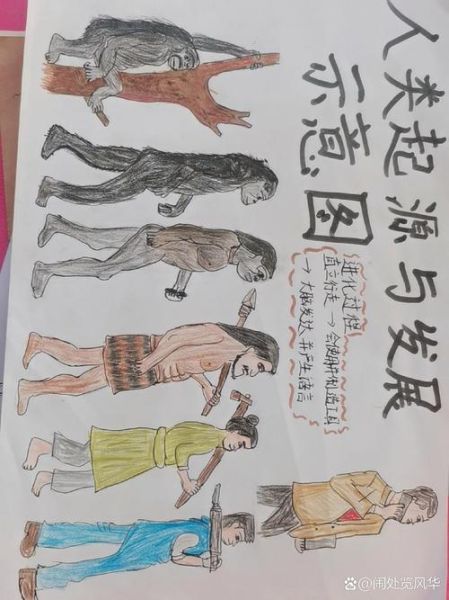 人类起源与发展
示意图
进化过程
直立行走→会使用和制造工具
→大脑发达,并产生语言
@闹处览风华